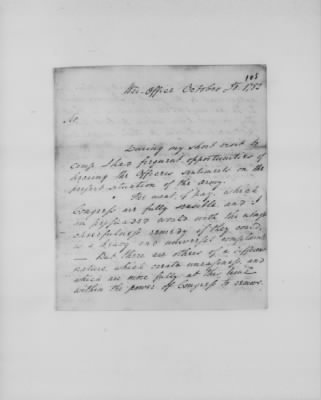 108
War-Office October 1782
Sir,
During my short visit to
camp I had frequent opportunities of
hearing the Officers sentiments on the
present situation of the army.
The want of pay, which
Congress are fully sensible, and I
am persuaded would with the utmost
chearfulness remedy if they could,
is a heavy and universal complaint
— But there are others of a different
nature, which create uneasiness, and
which are more fully at this time
within the power of Congress to remove.